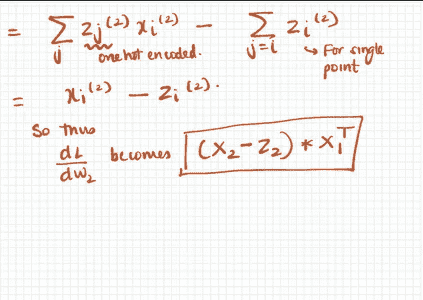 = Σ_j z_j^(2) x_i^(2) − Σ_{j=i} z_i^(2)
one hot encoded.
↳ For single point
= x_i^(2) − z_i^(2).
So thus
dL/dW_2 becomes (X_2 − Z_2) * X_1^T